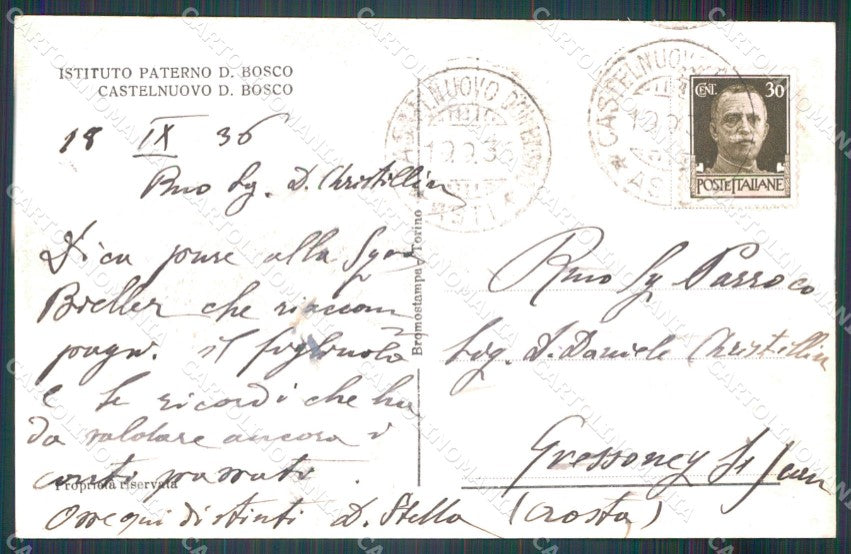 ISTITUTO PATERNO D. BOSCO
CASTELNUOVO D. BOSCO
18 IX 36
Rmo Sg. D. Christillin
Dica pure alla Sgra
che riaccom
pagni il figliuolo
e si ricordi che ha
da saldare ancora i
conti passati.
Ossequi distinti D. Stella
Proprietà riservata
Bromostampa Torino
CASTELNUOVO DON BOSCO
ASTI
CASTELNUOVO
CENT. 30
POSTE ITALIANE
Rmo Sg Parroco
Sig. D. Daniele Christillin
Gressoney St Jean
(Aosta)
CARTOLINOMANIA